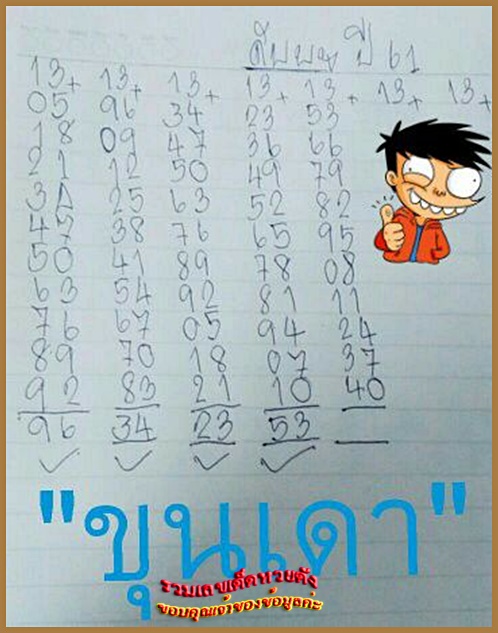 ดับบน ปี 61
13+ 13+ 13+ 13+ 13+ 13+ 13+
05 96 34 23 53
18 09 47 36 66
21 12 50 49 79
34 25 63 52 82
47 38 76 65 95
50 41 89 78 08
63 54 92 81 11
76 67 05 94 24
89 70 18 07 37
92 83 21 10 40
96 34 23 53
"ขุนเดา"
รวมเลขเด็ดหวยดัง
ขอบคุณเจ้าของข้อมูลค่ะ